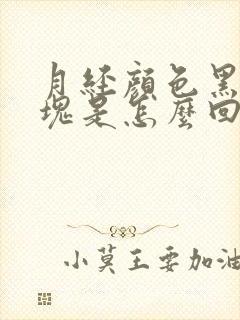 月經顏色黑
塊是怎麼回
小莫王要加油